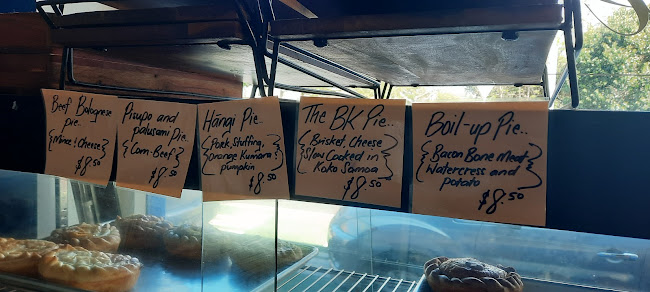 Beef Bolognese
pie..
{Mince & Cheese}
$8.50
Pisupo and
palusami Pie.
{Corn-Beef}
$8.50
Hāngi Pie..
{Pork, Stuffing,
orange Kumara &
pumpkin}
$8.50
The BK Pie..
{Brisket, Cheese
Slow Cooked in
Koko Samoa}
$8.50
Boil-up Pie..
{Bacon Bone Meat,
Watercress and
potato}
$8.50